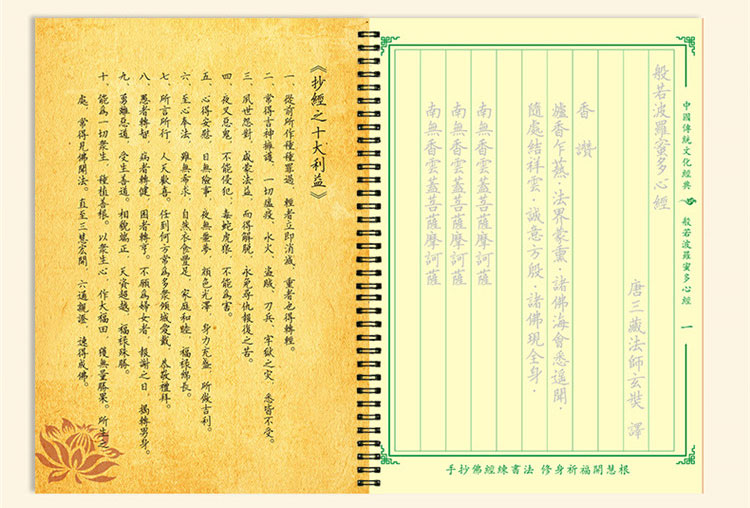 《抄經之十大利益》
一、從前所作種種罪過，輕者立即消滅，重者也得轉輕。
二、常得吉神擁護，一切瘟疫、水火、盜賊、刀兵、牢獄之災，悉皆不受。
三、夙世怨對，咸蒙法益，而得解脫，永免尋仇報復之苦。
四、夜叉惡鬼，不能侵犯，毒蛇虎狼，不能為害。
五、心得安慰，日無險事，夜無噩夢，顏色光澤，身力充盛，所做吉利。
六、至心奉法，雖無希求，自然衣食豐足，家庭和睦，福祿綿長。
七、所言所行，人天歡喜。任到何方常為多眾傾誠愛戴，恭敬禮拜。
八、愚者轉智，病者轉健，困者轉亨。不願為婦女者，報謝之日，轉男身。
九、離惡道，受生善道。相貌端正，天資超越，福祿殊勝。
十、能為一切眾生，種植善根。以眾生心，作大福田，獲無量勝果。所生之
處，常得見佛聞法。直至三慧宏開，六通親證，速得成佛。
中國傳統文化經典 般若波羅蜜多心經 一
般若波羅蜜多心經
唐三藏法師玄奘 譯
香讚
爐香乍爇·法界蒙熏·諸佛海會悉遙聞·
隨處結祥雲·誠意方殷·諸佛現全身·
南無香雲蓋菩薩摩訶薩
南無香雲蓋菩薩摩訶薩
南無香雲蓋菩薩摩訶薩
手抄佛經練書法 修身祈福開慧根